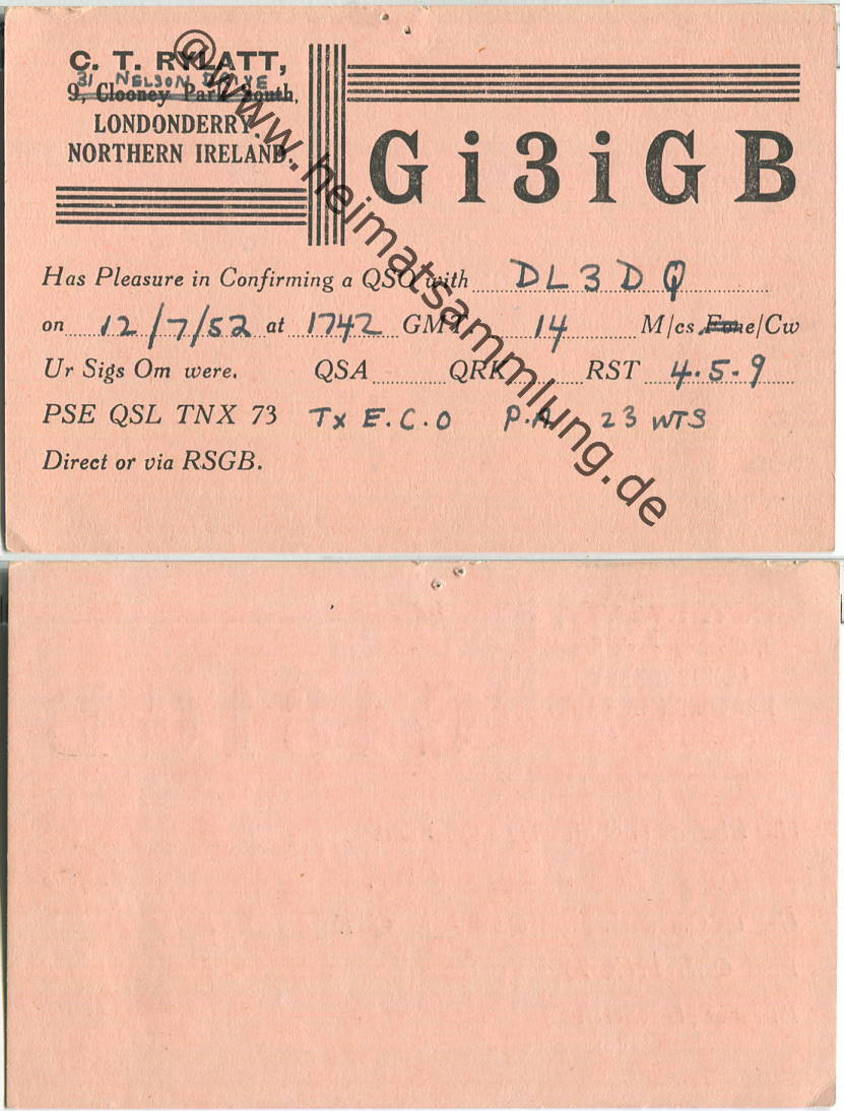 C. T. RYLATT,
31 NELSON DRIVE
9, Clooney Park South,
LONDONDERRY
NORTHERN IRELAND.
Gi3iGB
Has Pleasure in Confirming a QSO with DL3DQ
on 12/7/52 at 1742 GMT. 14 M/cs. Fone/Cw
Ur Sigs Om were. QSA QRK RST 4.5.9
PSE QSL TNX 73 Tx E.C.O P.A. 23 WTS
Direct or via RSGB.
@www.heimatsammlung.de